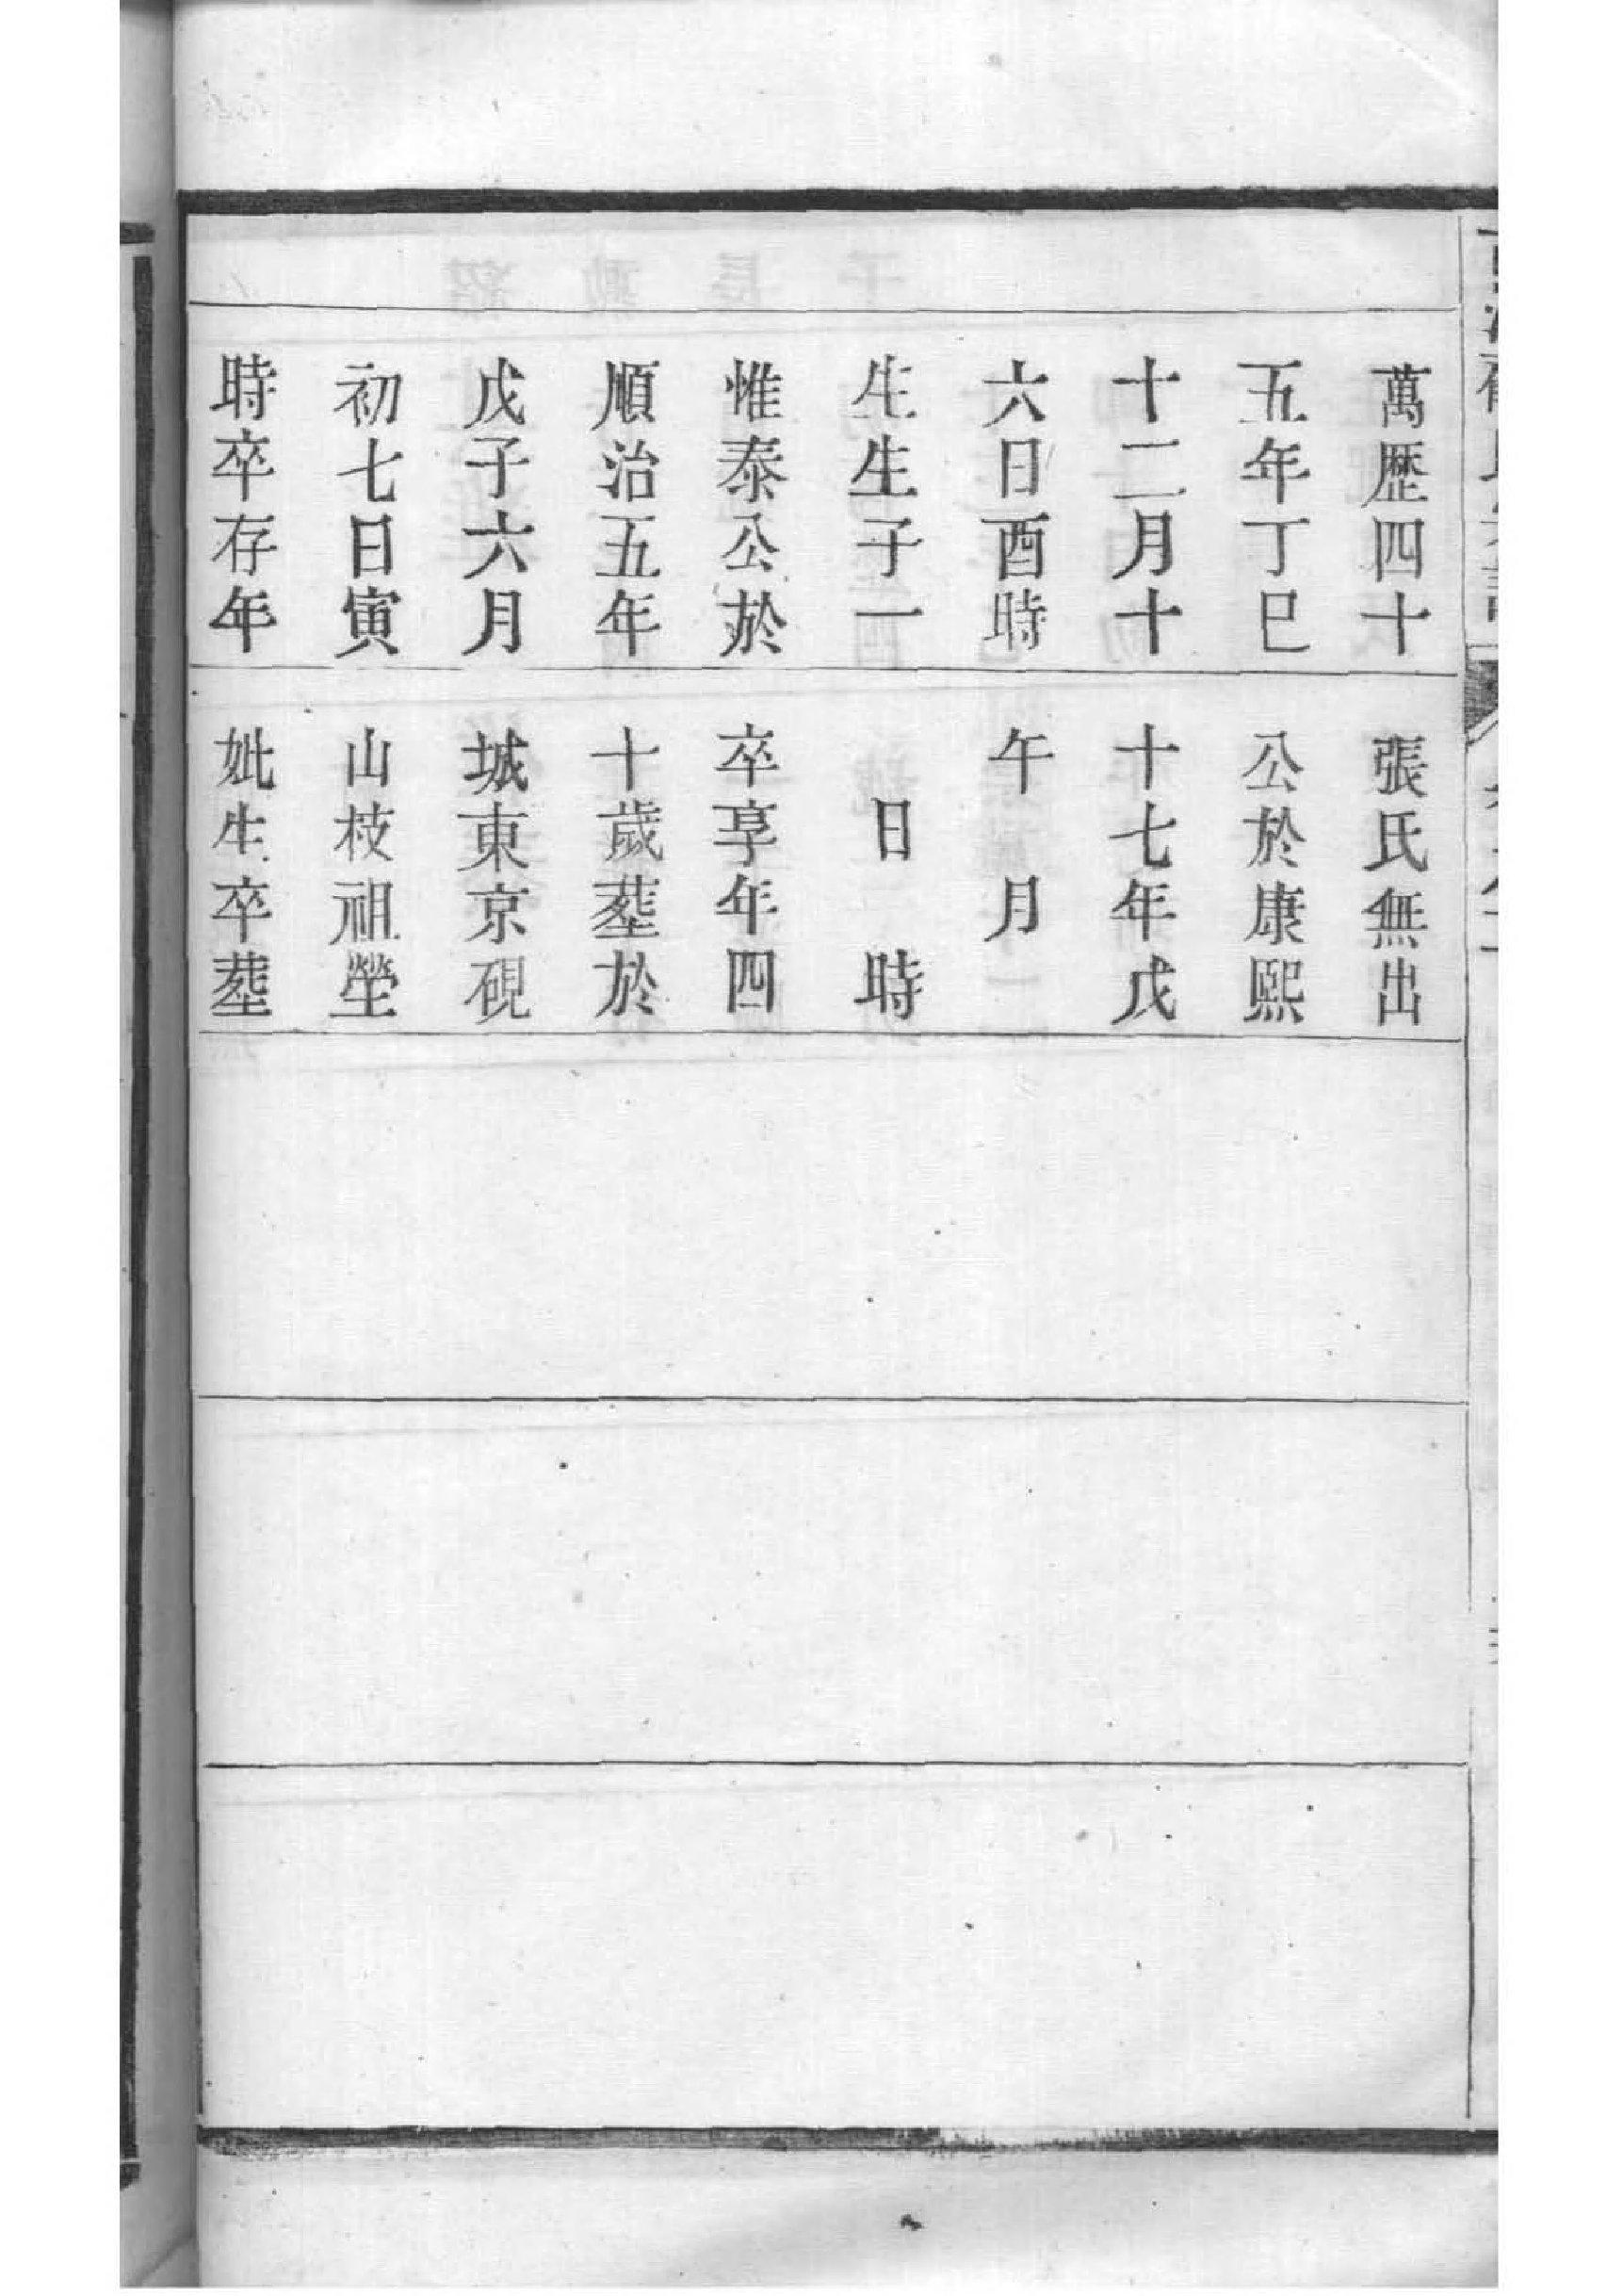 萬歴四十
五年丁巳
十二月十
六日酉時
生生子一
惟泰公於
順治五年
戊子六月
初七日寅
時卒存年
張氏無出
公於康熙
十七年戊
午　月
日　時
卒享年四
十歲塟於
城東京硯
山枝祖塋
妣生卒塟